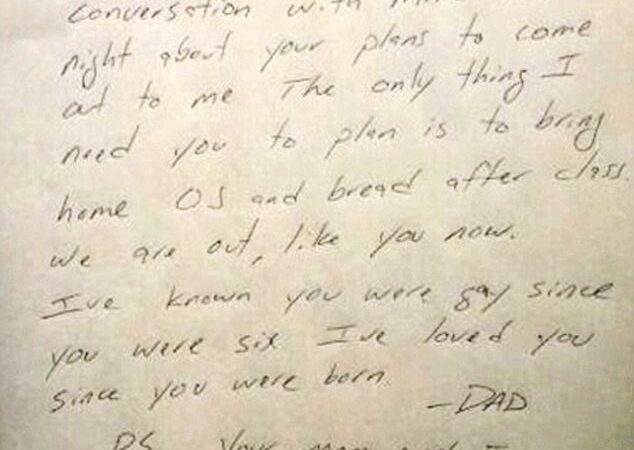 conversation with
night about your plans to come
out to me The only thing I
need you to plan is to bring
home OJ and bread after class.
We are out, like you now.
I've known you were gay since
you were six I've loved you
since you were born
-DAD
PS Your mom and I